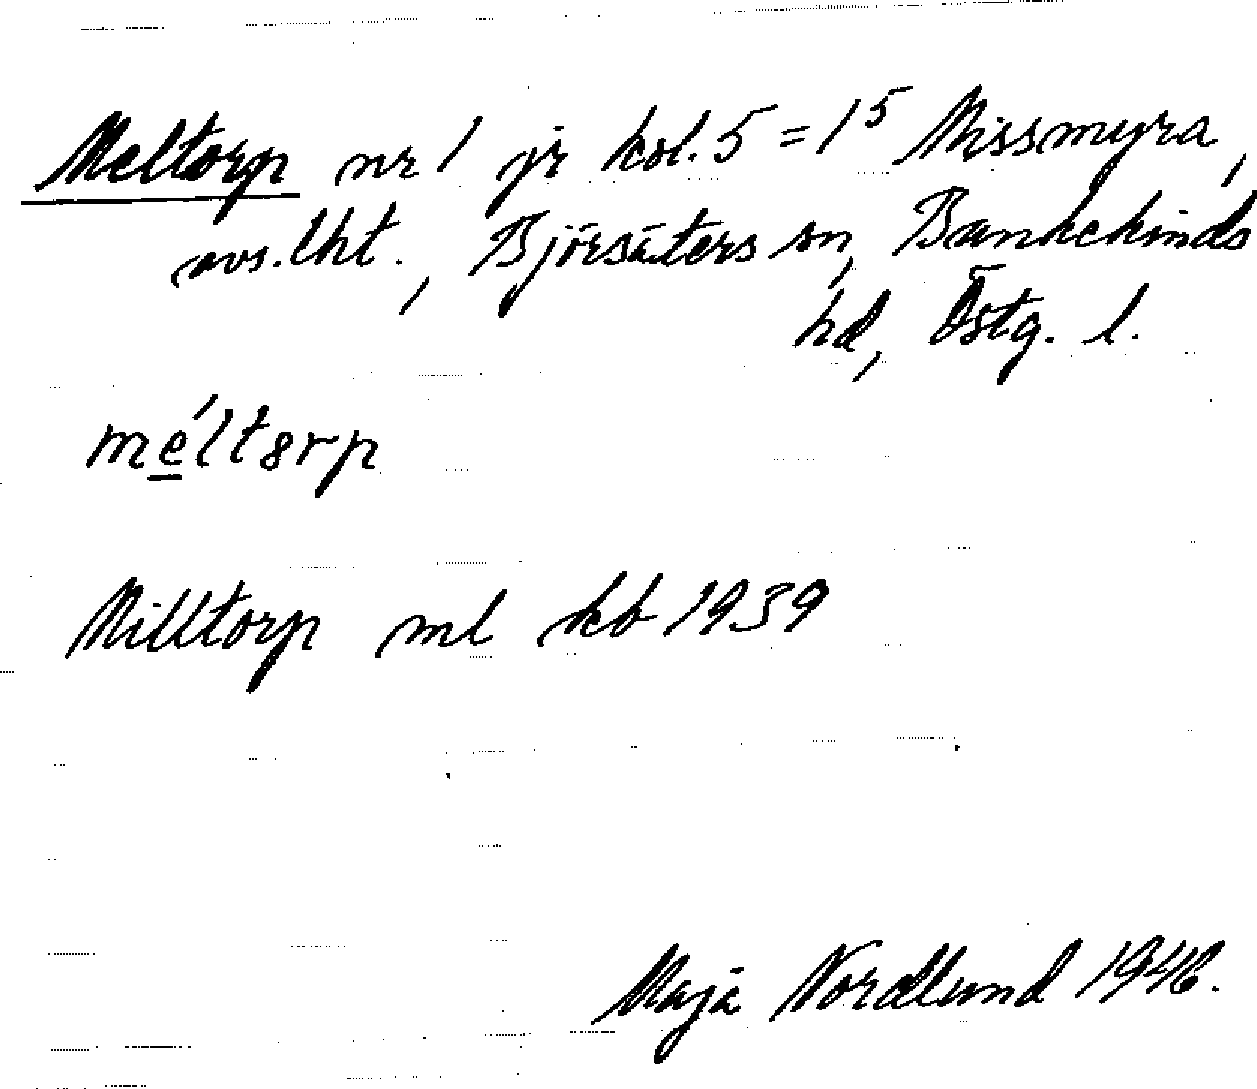 Meltorp nr 1 jr kol. 5 = 1⁵ Missmyra,
avs. lht., Björsäters sn, Bankekinds
hd, Östg. l.
méltorp
Milltorp ml kb 1939
Maja Nordlund 1946.